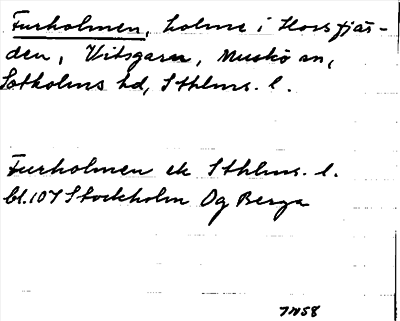 Furholmen, holme i Horsfjär-
den, Vitsgarn, Muskö sn,
Sotholms hd, Sthlms. l.
Furholmen ek Sthlms. l.
bl. 107 Stockholm Og Berga
7N58